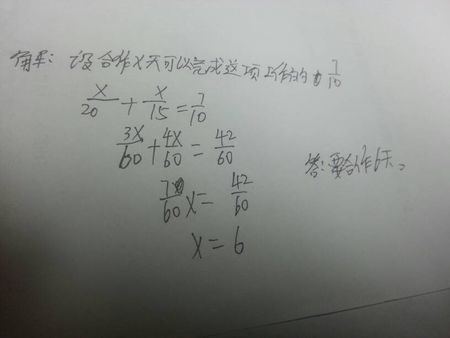 解:设合作x天可以完成这项工作的7/10
x/20 + x/15 = 7/10
3x/60 + 4x/60 = 42/60
7/60 x = 42/60
x = 6
答:要合作6天。